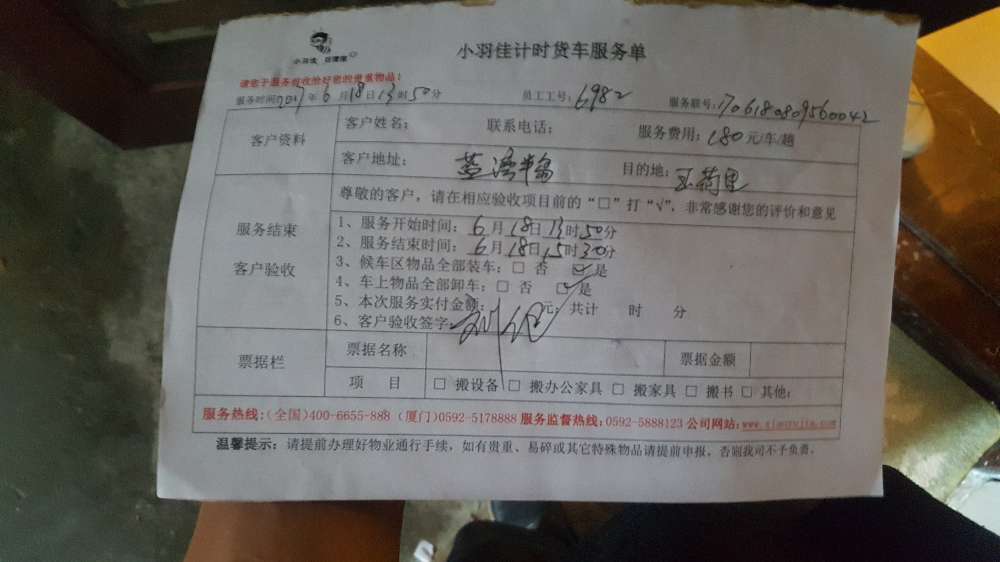 小羽佳计时货车服务单
小羽佳
请您于服务前收恰好您的贵重物品!
服务时间2017年6月18日13时50分 员工工号:6982 服务联号:1706180809560042
客户资料 客户姓名: 联系电话: 服务费用:180元/车/趟
客户地址: 目的地:
尊敬的客户,请在相应验收项目前的“□”打“√”,非常感谢您的评价和意见
服务结束
客户验收
1、服务开始时间:6月18日13时50分
2、服务结束时间:6月18日15时30分
3、候车区物品全部装车:□ 否 ☑是
4、车上物品全部卸车:□ 否 ☑是
5、本次服务实付金额: 元;共计 时 分
6、客户验收签字:
票据栏 票据名称 票据金额
项 目 □ 搬设备 □ 搬办公家具 □ 搬家具 □ 搬书 □ 其他:
服务热线:(全国)400-6655-888 (厦门)0592-5178888 服务监督热线:0592-5888123 公司网站:www.xiaoyujia.com
温馨提示:请提前办理好物业通行手续,如有贵重、易碎或其它特殊物品请提前申报,否则我司不予负责。